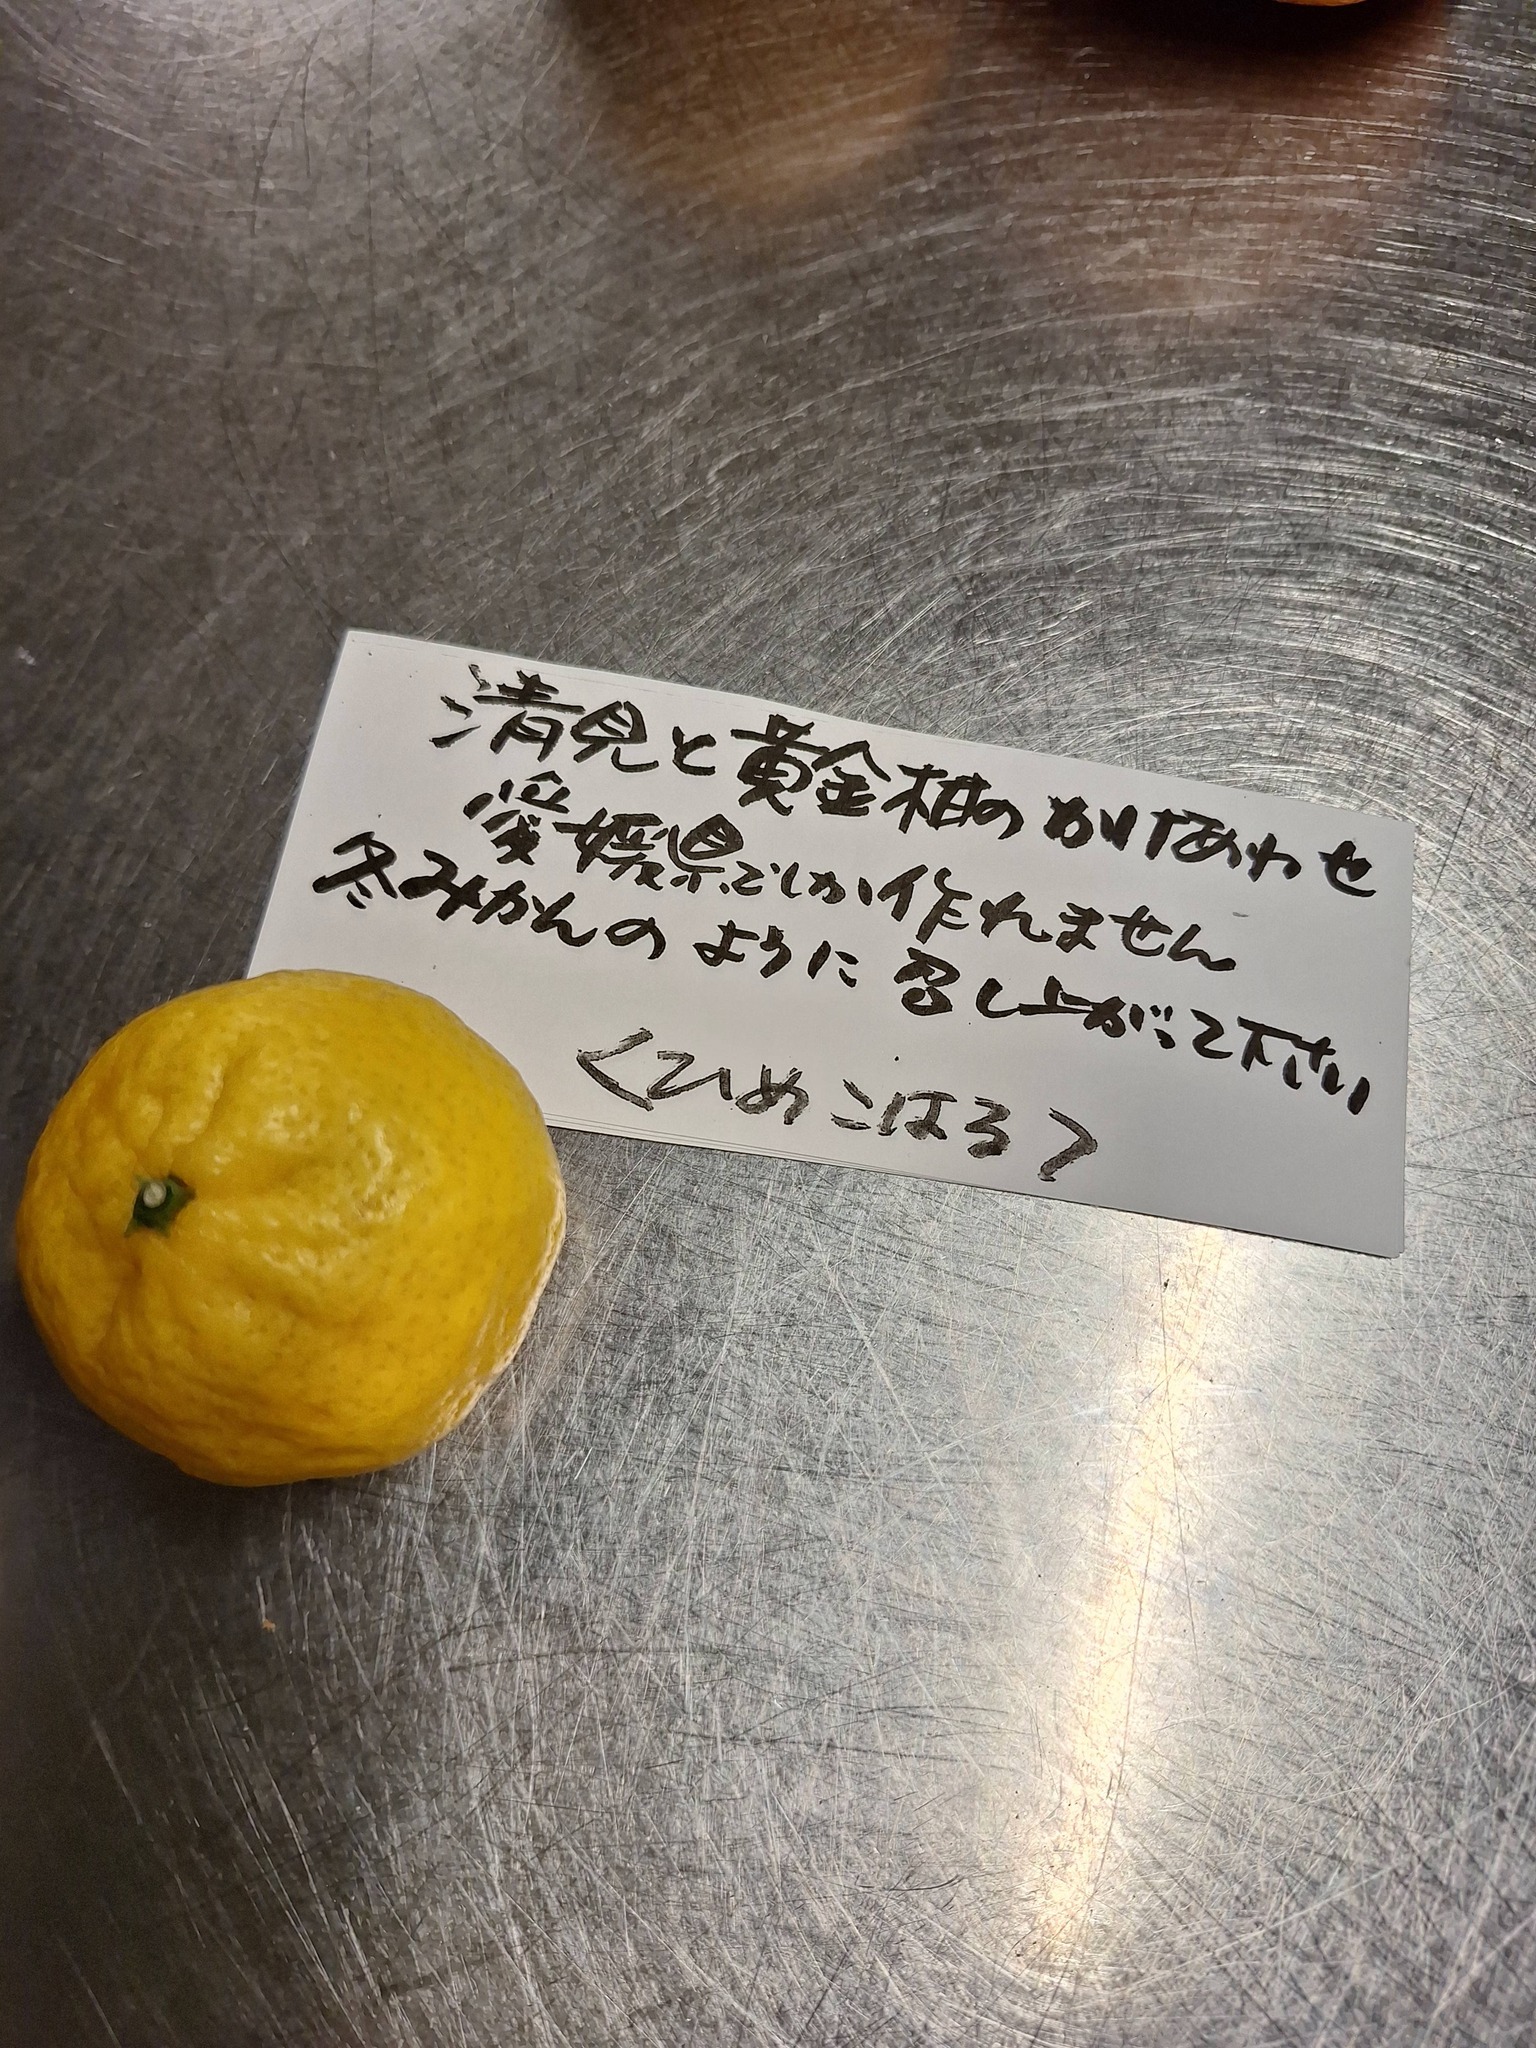 清見と黄金柑のかけあわせ
愛媛県でしか作れません
冬みかんのように召し上がって下さい
<ひめこはる>